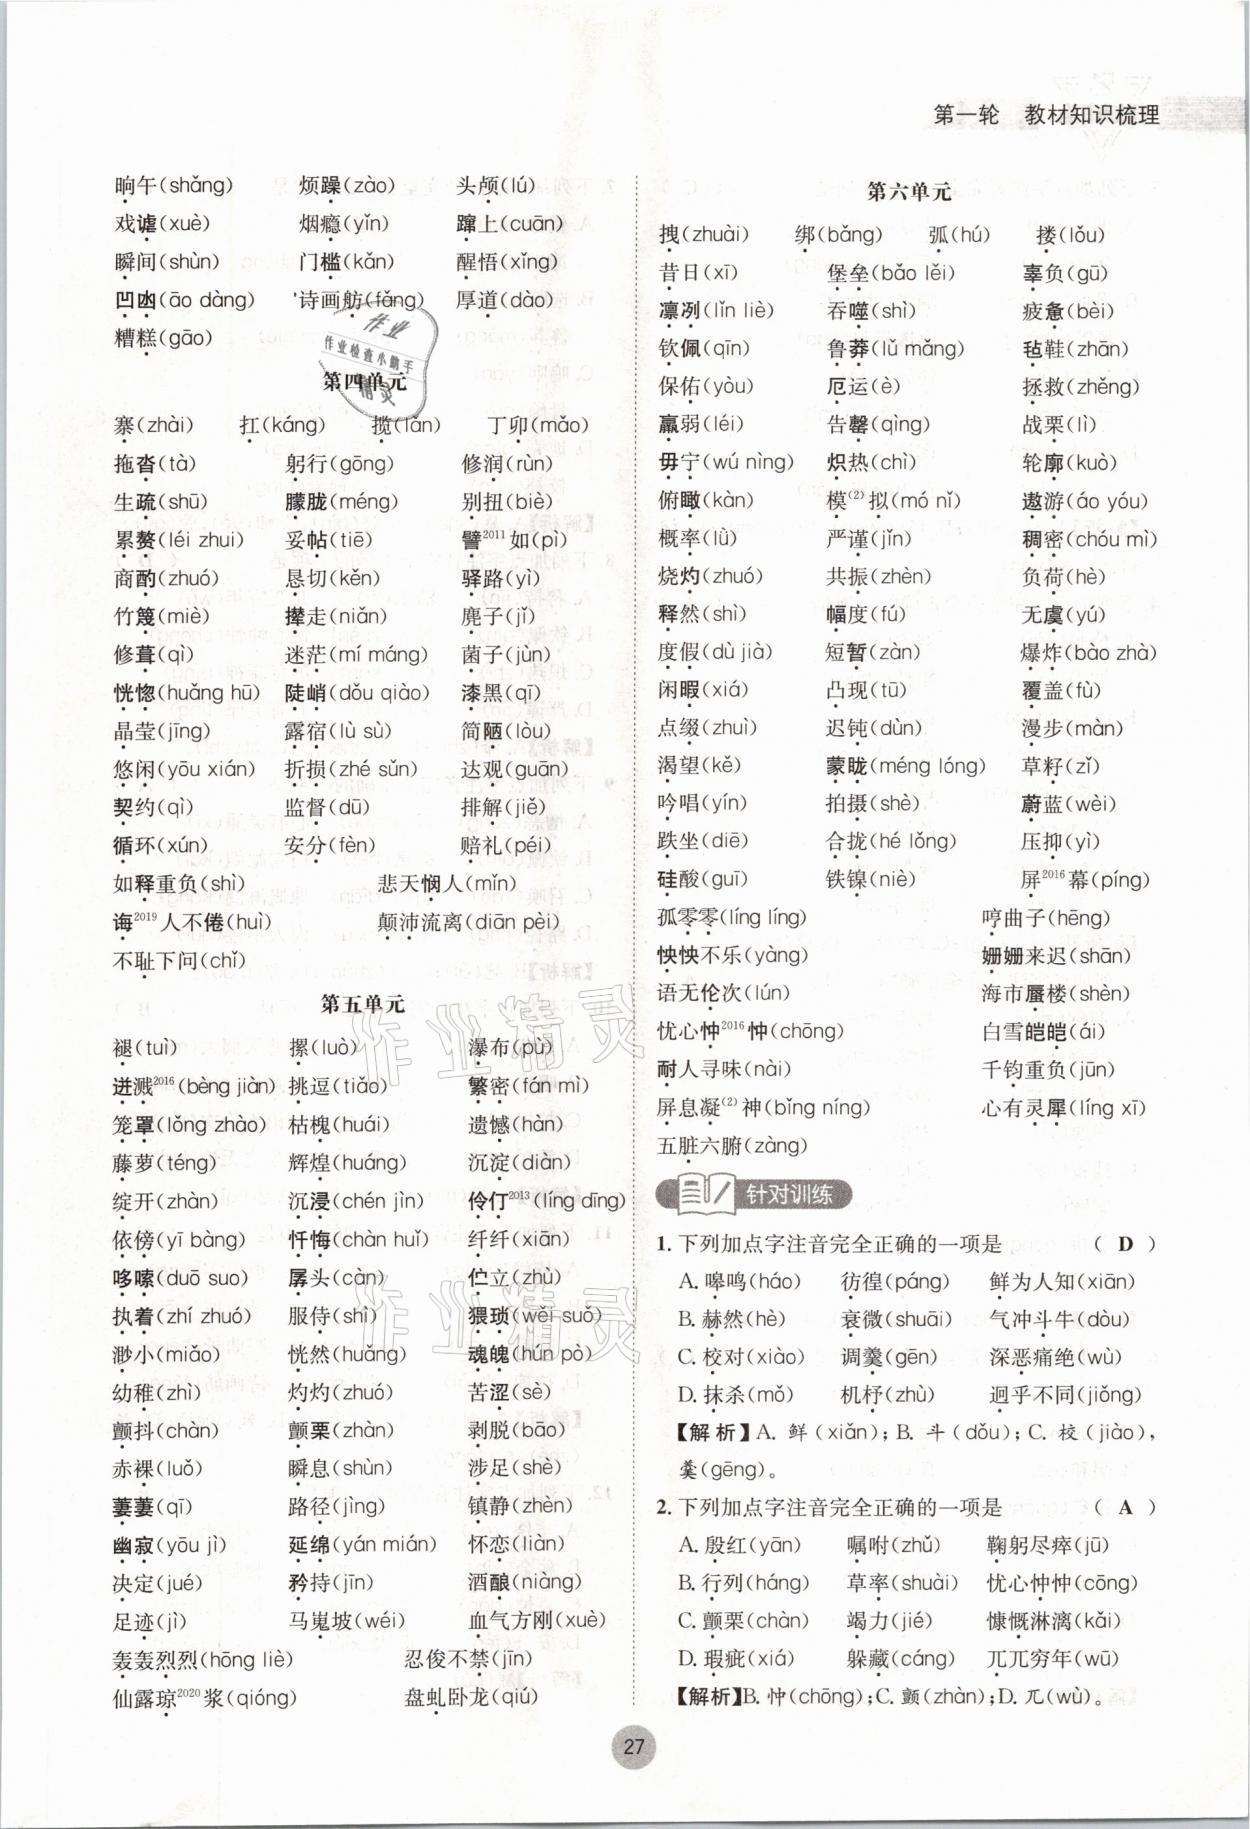 第一轮　教材知识梳理
晌午(shǎng)　烦躁(zào)　头颅(lú)
戏谑(xuè)　烟瘾(yǐn)　蹿上(cuān)
瞬间(shùn)　门槛(kǎn)　醒悟(xǐng)
凹凼(āo dàng)　诗画舫(fǎng)　厚道(dào)
糟糕(gāo)
第四单元
寨(zhài)　扛(káng)　揽(lǎn)　丁卯(mǎo)
拖沓(tà)　躬行(gōng)　修润(rùn)
生疏(shū)　朦胧(méng)　别扭(biè)
累赘(léi zhui)　妥帖(tiē)　譬2011如(pì)
商酌(zhuó)　恳切(kěn)　驿路(yì)
竹篾(miè)　撵走(niǎn)　麂子(jǐ)
修葺(qì)　迷茫(mí máng)　菌子(jùn)
恍惚(huǎng hū)　陡峭(dǒu qiào)　漆黑(qī)
晶莹(jīng)　露宿(lù sù)　简陋(lòu)
悠闲(yōu xián)　折损(zhé sǔn)　达观(guān)
契约(qì)　监督(dū)　排解(jiě)
循环(xún)　安分(fèn)　赔礼(péi)
如释重负(shì)　悲天悯人(mǐn)
诲2019人不倦(huì)　颠沛流离(diān pèi)
不耻下问(chǐ)
第五单元
褪(tuì)　摞(luò)　瀑布(pù)
迸溅2016(bèng jiàn)　挑逗(tiǎo)　繁密(fán mì)
笼罩(lǒng zhào)　枯槐(huái)　遗憾(hàn)
藤萝(téng)　辉煌(huáng)　沉淀(diàn)
绽开(zhàn)　沉浸(chén jìn)　伶仃2013(líng dīng)
依傍(yī bàng)　忏悔(chàn huǐ)　纤纤(xiān)
哆嗦(duō suo)　孱头(càn)　伫立(zhù)
执着(zhí zhuó)　服侍(shì)　猥琐(wěi suǒ)
渺小(miǎo)　恍然(huǎng)　魂魄(hún pò)
幼稚(zhì)　灼灼(zhuó)　苦涩(sè)
颤抖(chàn)　颤栗(zhàn)　剥脱(bāo)
赤裸(luǒ)　瞬息(shùn)　涉足(shè)
萋萋(qī)　路径(jìng)　镇静(zhèn)
幽寂(yōu jì)　延绵(yán mián)　怀恋(liàn)
决定(jué)　矜持(jīn)　酒酿(niàng)
足迹(jì)　马嵬坡(wéi)　血气方刚(xuè)
轰轰烈烈(hōng liè)　忍俊不禁(jīn)
仙露琼2020浆(qióng)　盘虬卧龙(qiú)
第六单元
拽(zhuài)　绑(bǎng)　弧(hú)　搂(lǒu)
昔日(xī)　堡垒(bǎo lěi)　辜负(gū)
凛冽(lǐn liè)　吞噬(shì)　疲惫(bèi)
钦佩(qīn)　鲁莽(lǔ mǎng)　毡鞋(zhān)
保佑(yòu)　厄运(è)　拯救(zhěng)
羸弱(léi)　告罄(qìng)　战栗(lì)
毋宁(wú nìng)　炽热(chì)　轮廓(kuò)
俯瞰(kàn)　模(2)拟(mó nǐ)　遨游(áo yóu)
概率(lǜ)　严谨(jǐn)　稠密(chóu mì)
烧灼(zhuó)　共振(zhèn)　负荷(hè)
释然(shì)　幅度(fú)　无虞(yú)
度假(dù jià)　短暂(zàn)　爆炸(bào zhà)
闲暇(xiá)　凸现(tū)　覆盖(fù)
点缀(zhuì)　迟钝(dùn)　漫步(màn)
渴望(kě)　蒙眬(méng lóng)　草籽(zǐ)
吟唱(yín)　拍摄(shè)　蔚蓝(wèi)
跌坐(diē)　合拢(hé lǒng)　压抑(yì)
硅酸(guī)　铁镍(niè)　屏2016幕(píng)
孤零零(líng líng)　哼曲子(hēng)
怏怏不乐(yàng)　姗姗来迟(shān)
语无伦次(lún)　海市蜃楼(shèn)
忧心忡2016忡(chōng)　白雪皑皑(ái)
耐人寻味(nài)　千钧重负(jūn)
屏息凝(2)神(bǐng níng)　心有灵犀(líng xī)
五脏六腑(zàng)
针对训练
1. 下列加点字注音完全正确的一项是　( D )
A. 嗥鸣(háo)　彷徨(páng)　鲜为人知(xiān)
B. 赫然(hè)　衰微(shuāi)　气冲斗牛(dòu)
C. 校对(xiào)　调羹(gēn)　深恶痛绝(wù)
D. 抹杀(mǒ)　机杼(zhù)　迥乎不同(jiǒng)
【解析】A. 鲜(xiǎn)；B. 斗(dǒu)；C. 校(jiào)，
羹(gēng)。
2. 下列加点字注音完全正确的一项是　( A )
A. 殷红(yān)　嘱咐(zhǔ)　鞠躬尽瘁(jū)
B. 行列(háng)　草率(shuài)　忧心忡忡(cōng)
C. 颤栗(chàn)　竭力(jié)　慷慨淋漓(kǎi)
D. 瑕疵(xiá)　躲藏(cáng)　兀兀穷年(wū)
【解析】B. 忡(chōng)；C. 颤(zhàn)；D. 兀(wù)。
27
作业
作业检查小助手
精灵
作业精灵
作业精灵